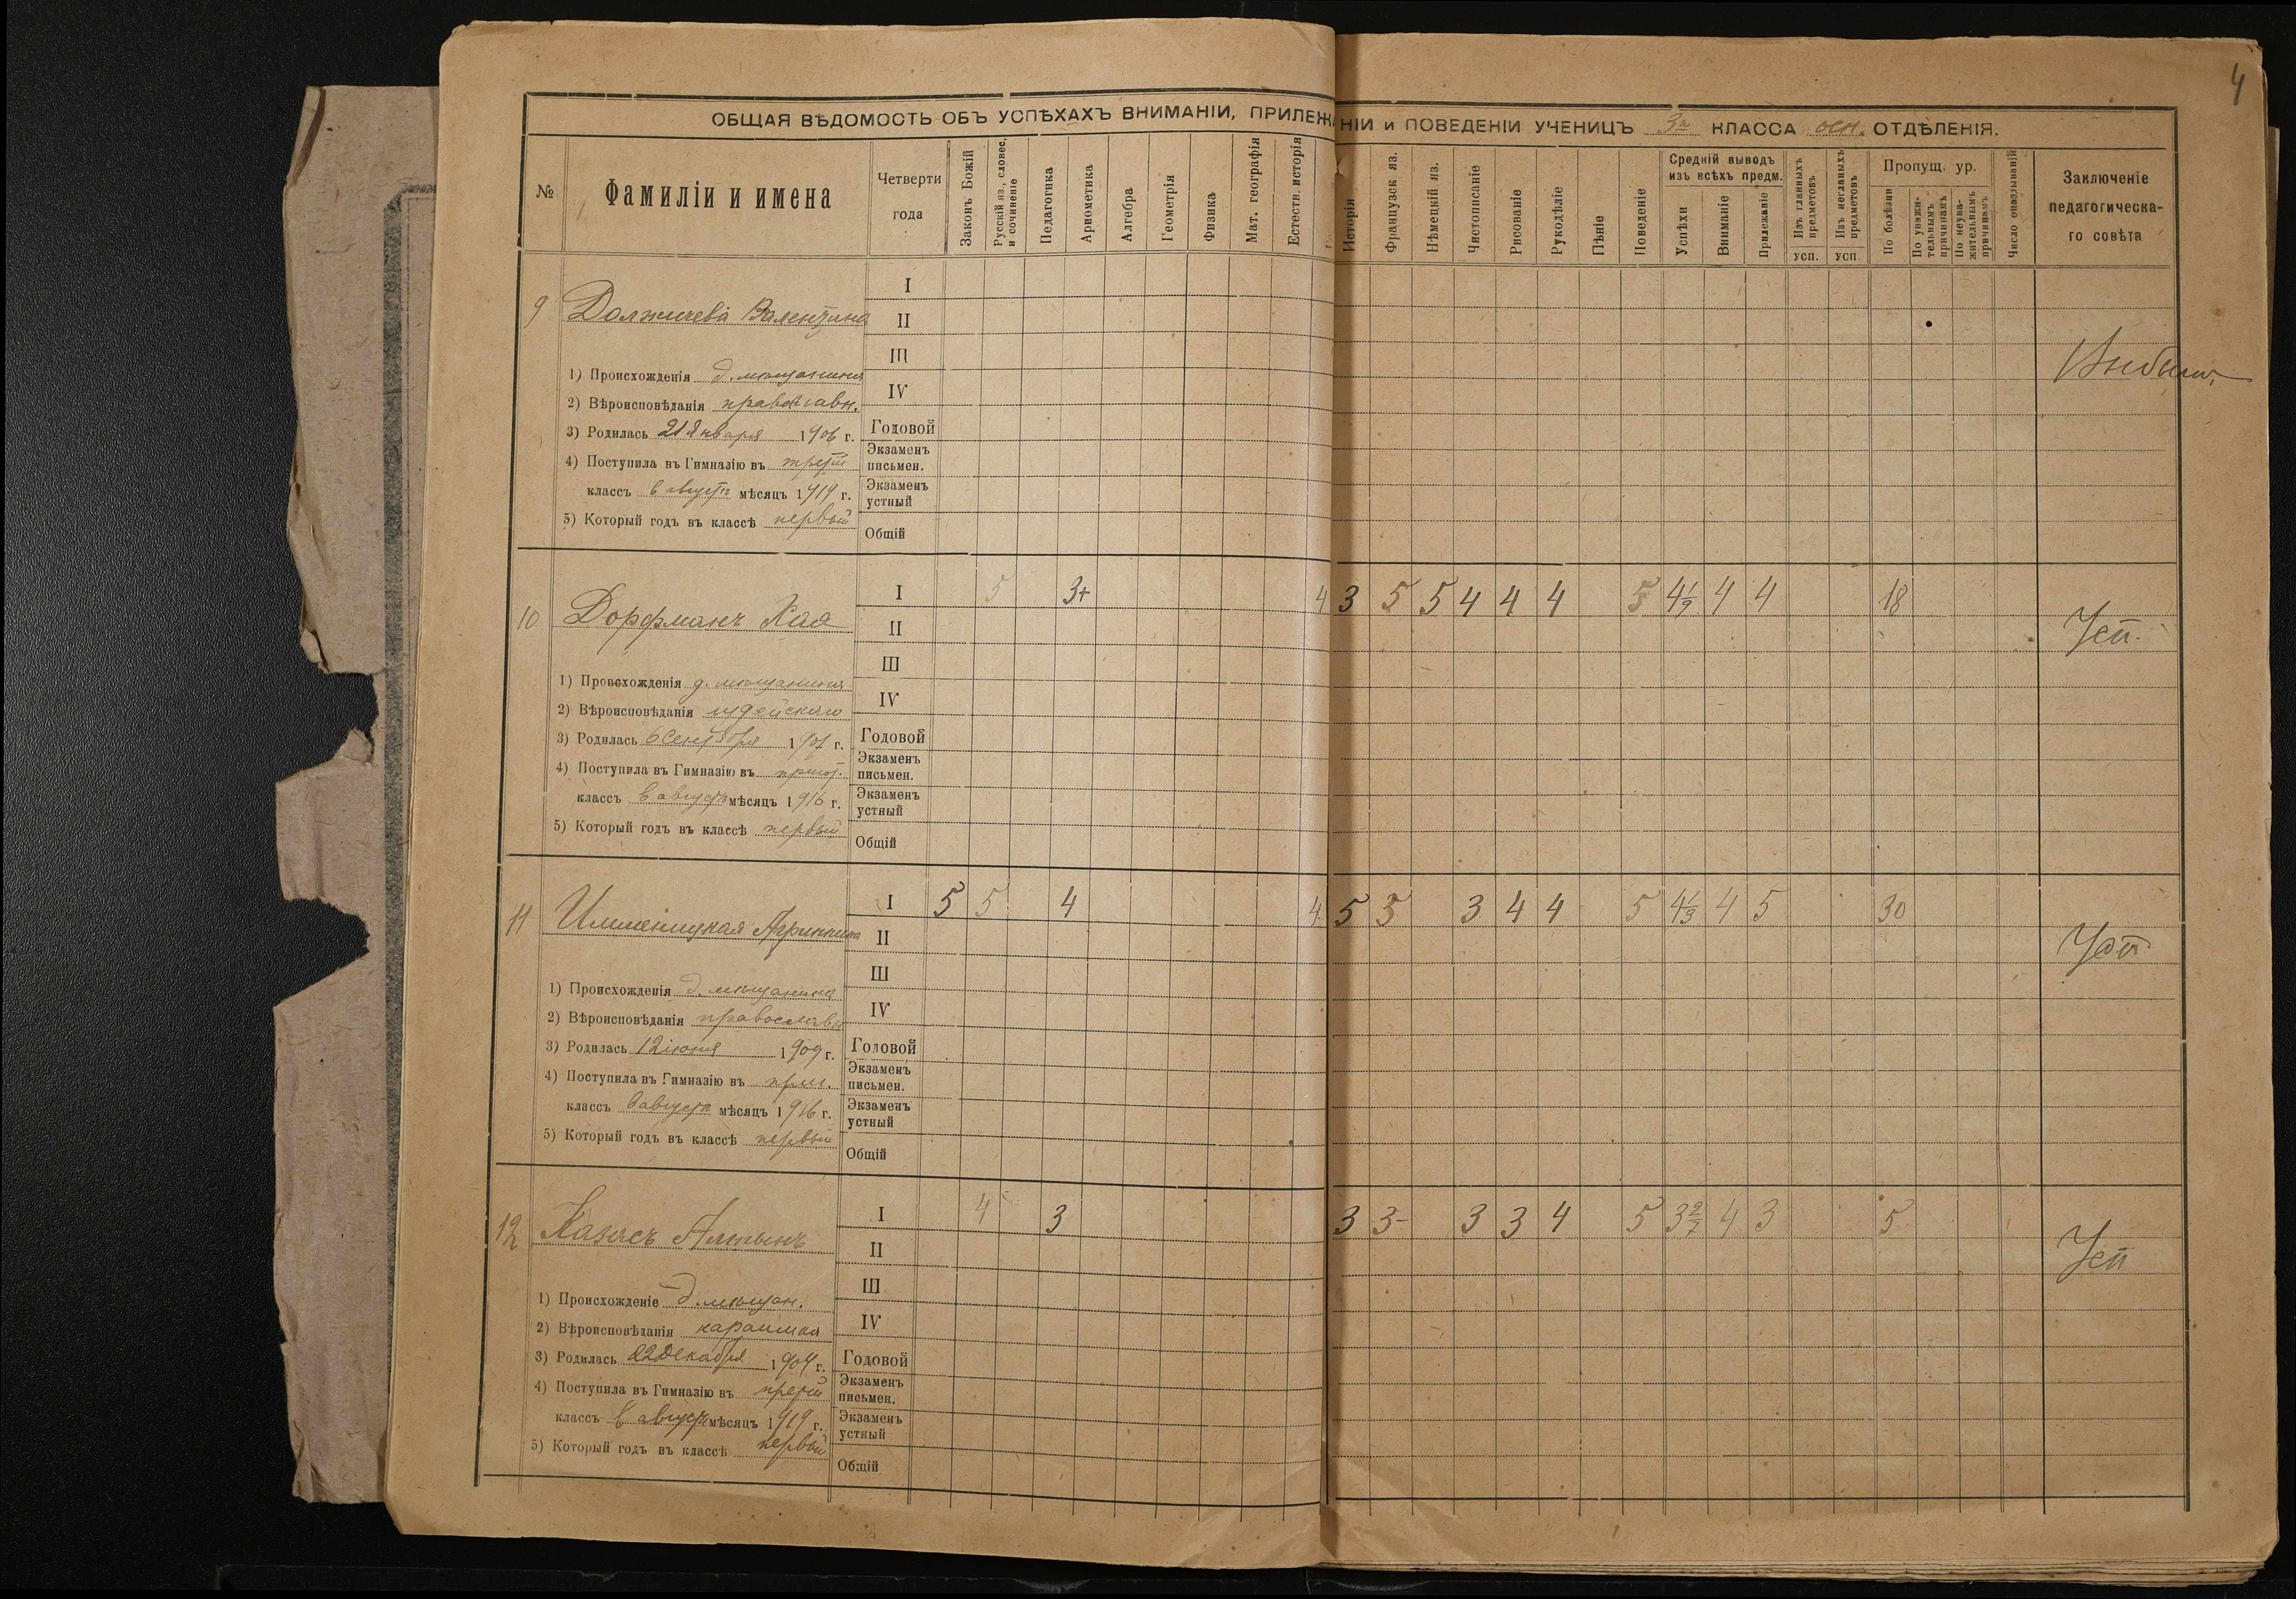 4
ОБЩАЯ ВѢДОМОСТЬ ОБЪ УСПѢХАХЪ ВНИМАНІИ, ПРИЛЕЖАНІИ и ПОВЕДЕНІИ УЧЕНИЦЪ 3й КЛАССА осн. ОТДѢЛЕНІЯ.
№ Фамиліи и имена Четверти года
Законъ Божій
Русскій яз., словес. и сочиненіе
Педагогика
Ариѳметика
Алгебра
Геометрія
Физика
Мат. географія
Естеств. исторія
Исторія
Французск яз.
Нѣмецкій яз.
Чистописаніе
Рисованіе
Рукодѣліе
Пѣніе
Поведеніе
Средній выводъ изъ всѣхъ предм.
Успѣхи
Вниманіе
Прилежаніе
Изъ главныхъ предметовъ
усп.
Изъ неглавныхъ предметовъ
усп.
Пропущ. ур.
По болѣзни
По уважительнымъ причинамъ
По неуважительнымъ причинамъ
Число опаздываній
Заключеніе педагогическаго совѣта
9 Валентина
I
II
III
1) Происхожденія д. мѣщанина
IV
2) Вѣроисповѣданія православн.
3) Родилась 21 Января 1906 г. Годовой
4) Поступила въ Гимназію въ третій Экзаменъ письмен.
классъ в августѣ мѣсяцъ 1919 г. Экзаменъ устный
5) Который годъ въ классѣ первый
Общій
Выбыла
10 Дорфманъ Хая
I 5 3+ 4 3 5 5 4 4 4 5 4 1/9 4 4 18
II
Усп.
III
1) Происхожденія д. мѣщанина
IV
2) Вѣроисповѣданія іудейскаго
3) Родилась 6 Сентября 1907 г. Годовой
4) Поступила въ Гимназію въ пригот. Экзаменъ письмен.
классъ в августѣ мѣсяцъ 1916 г. Экзаменъ устный
5) Который годъ въ классѣ первый
Общій
11 Агриппина
I 5 5 4 4 5 5 3 4 4 5 4 1/3 4 5 30
II
Усп.
III
1) Происхожденія д. мѣщанина
IV
2) Вѣроисповѣданія православн
3) Родилась 12 іюня 1909 г. Годовой
4) Поступила въ Гимназію въ Экзаменъ письмен.
классъ в августѣ мѣсяцъ 1916 г. Экзаменъ устный
5) Который годъ въ классѣ первый
Общій
12 Казасъ Алтынъ
I 4 3 3 3- 3 3 4 5 3 2/7 4 3 5
II
Усп
III
1) Происхожденіе д. мѣщан.
IV
2) Вѣроисповѣданія караимка
3) Родилась 22 Декабря 1904 г. Годовой
4) Поступила въ Гимназію въ третій Экзаменъ письмен.
классъ в августѣ мѣсяцъ 1919 г. Экзаменъ устный
5) Который годъ въ классѣ первый
Общій